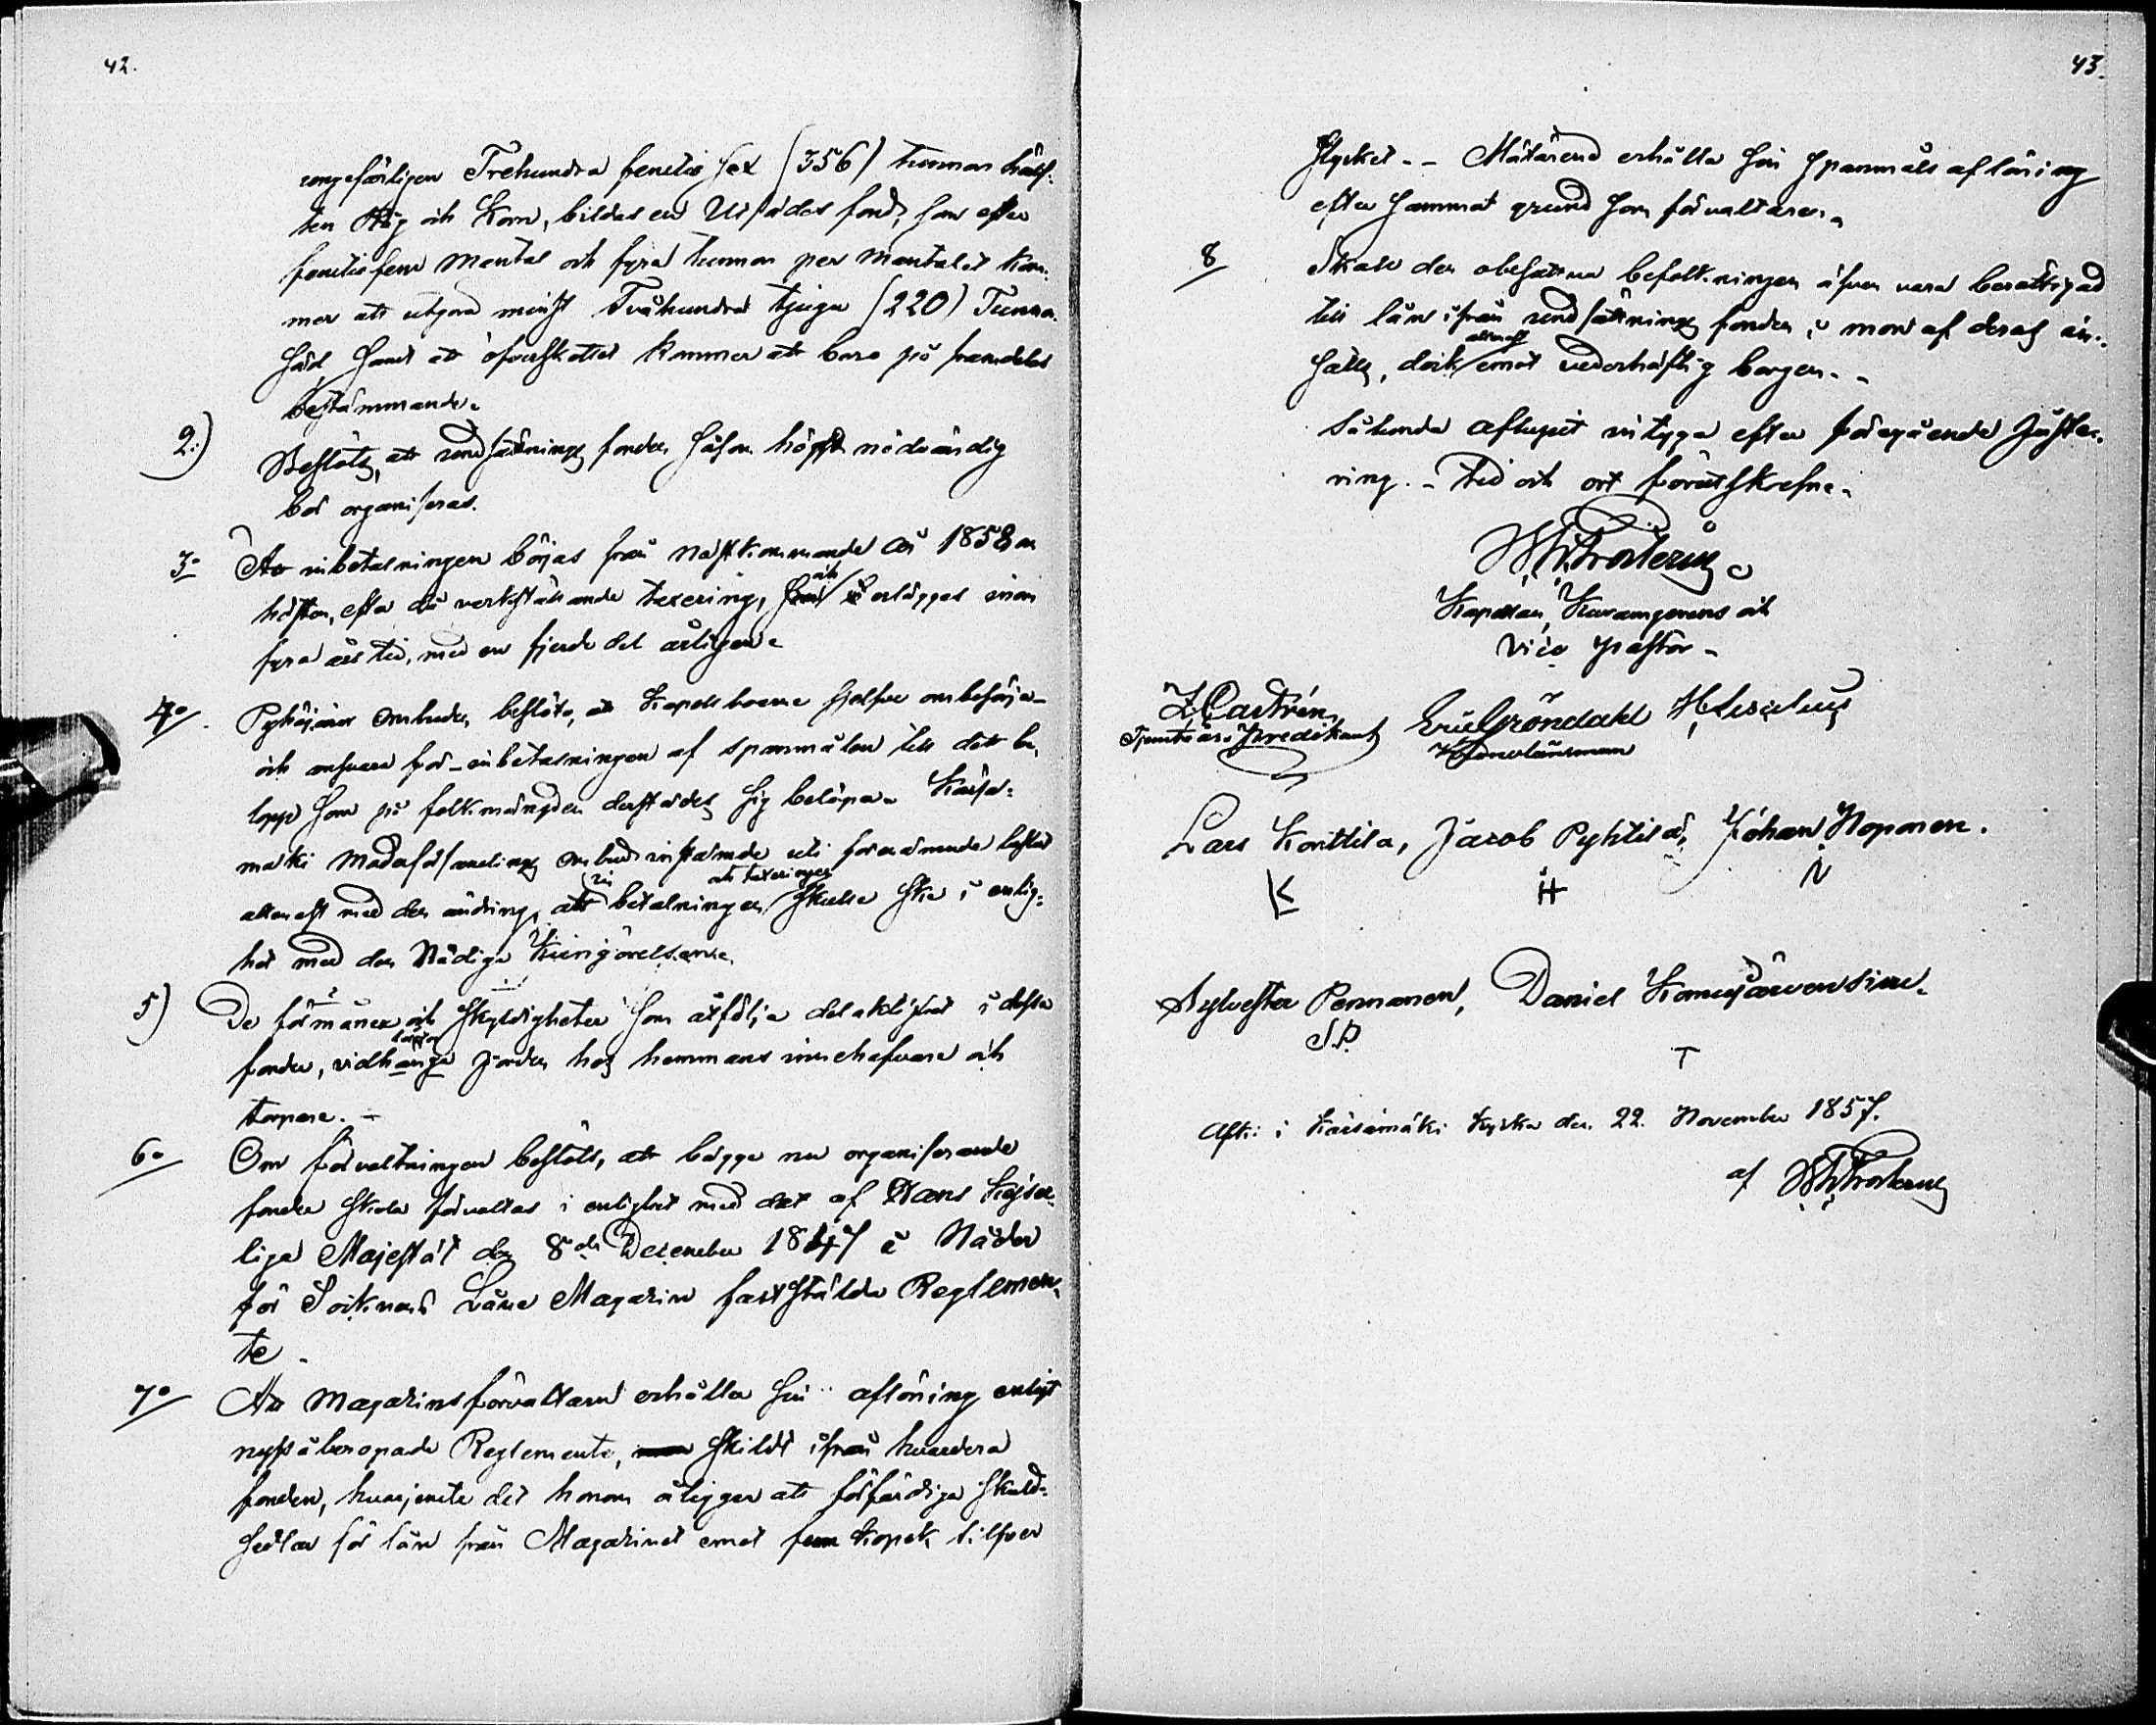 42.
ungefärligen Trehundra femtio sex (356) tunnor hälf-
ten Råg och Korn, bildas en Utsädes fond, som efter
femtiofem mantal och fyra tunnor per mantalet kom-
mer att utgöra minst Tvåhundra tjugu (220) Tunnor
Säd, samt att öfverskottet kommer att bero på framdeles
bestämmande.
2:) Beslöts, att undsättnings fonden såsom högst nödvändig
bör organiseras.
3o Att inbetalningen börjas från nästkommande år 1858 om
hösten, efter då verkställande taxering, och erlägges inom
fyra års tid, med en fjerde del årligen.
4o Pyhäjärvi Ombuden beslöto, att Kapellboerne sjelfve ombesörja
och ansvara för inbetalningen af spannmålen till det be-
lopp som på folkmängden derstädes sig belöpa. Kärsä-
mäki Moderförsamlings Ombud instämde uti förenämnde beslut
allenast med den ändring, att inbetalningen och taxeringen skulle ske i enlig-
het med den Nådiga Kungörelsen.
5) De förmåner och skyldigheter som åtfölja delaktighet i dessa
fonder, vidhänga jorden hos hemmans innehafvare och
torpare.
6o Om förvaltningen beslöts, att bägge nu organiserande
fonder skola förvaltas i enlighet med det af Hans Kejser-
liga Majestät den 8de December 1847 i Nåder
för Socknens Låne Magasin fastställda Reglemen-
te.
7o Att Magasinsförvaltaren erhåller sin aflöning enligt
nyssåberopade Reglemente, skildt ifrån hvardera
fonden, hvarjemte det honom åligger att förfärdiga skuld-
sedlar för lån från Magasinet emot fem kopek silfver
43.
stycket. - Mätaren erhåller sin spannmåls aflöning
efter sammat grund som förvaltaren.
8 Skall den obesuttna befolkningen äfven vara berättigad
till lån ifrån undsättnings fonden i mon af deras an-
hålls, dock allenast emot vederhäftig borgen.
Sålunda aflupit intyga efter föregående Juste-
ring. - Tid och ort förutskrefne.
Kapellan, Kuvamgerens och
Vice pastor.
Z Castrén
Tjenstgör. Predikant
Eric Gröndahl
Kronolänsman
H Liscelius
Lars Konttila, Jacob Pyhtilä, Johan Noponen.
K H N
Sylvester Pennanen, Daniel Komujärvensivu.
S.P. T
Afk: i Kärsämäki kyrka den 22. November 1857.
af